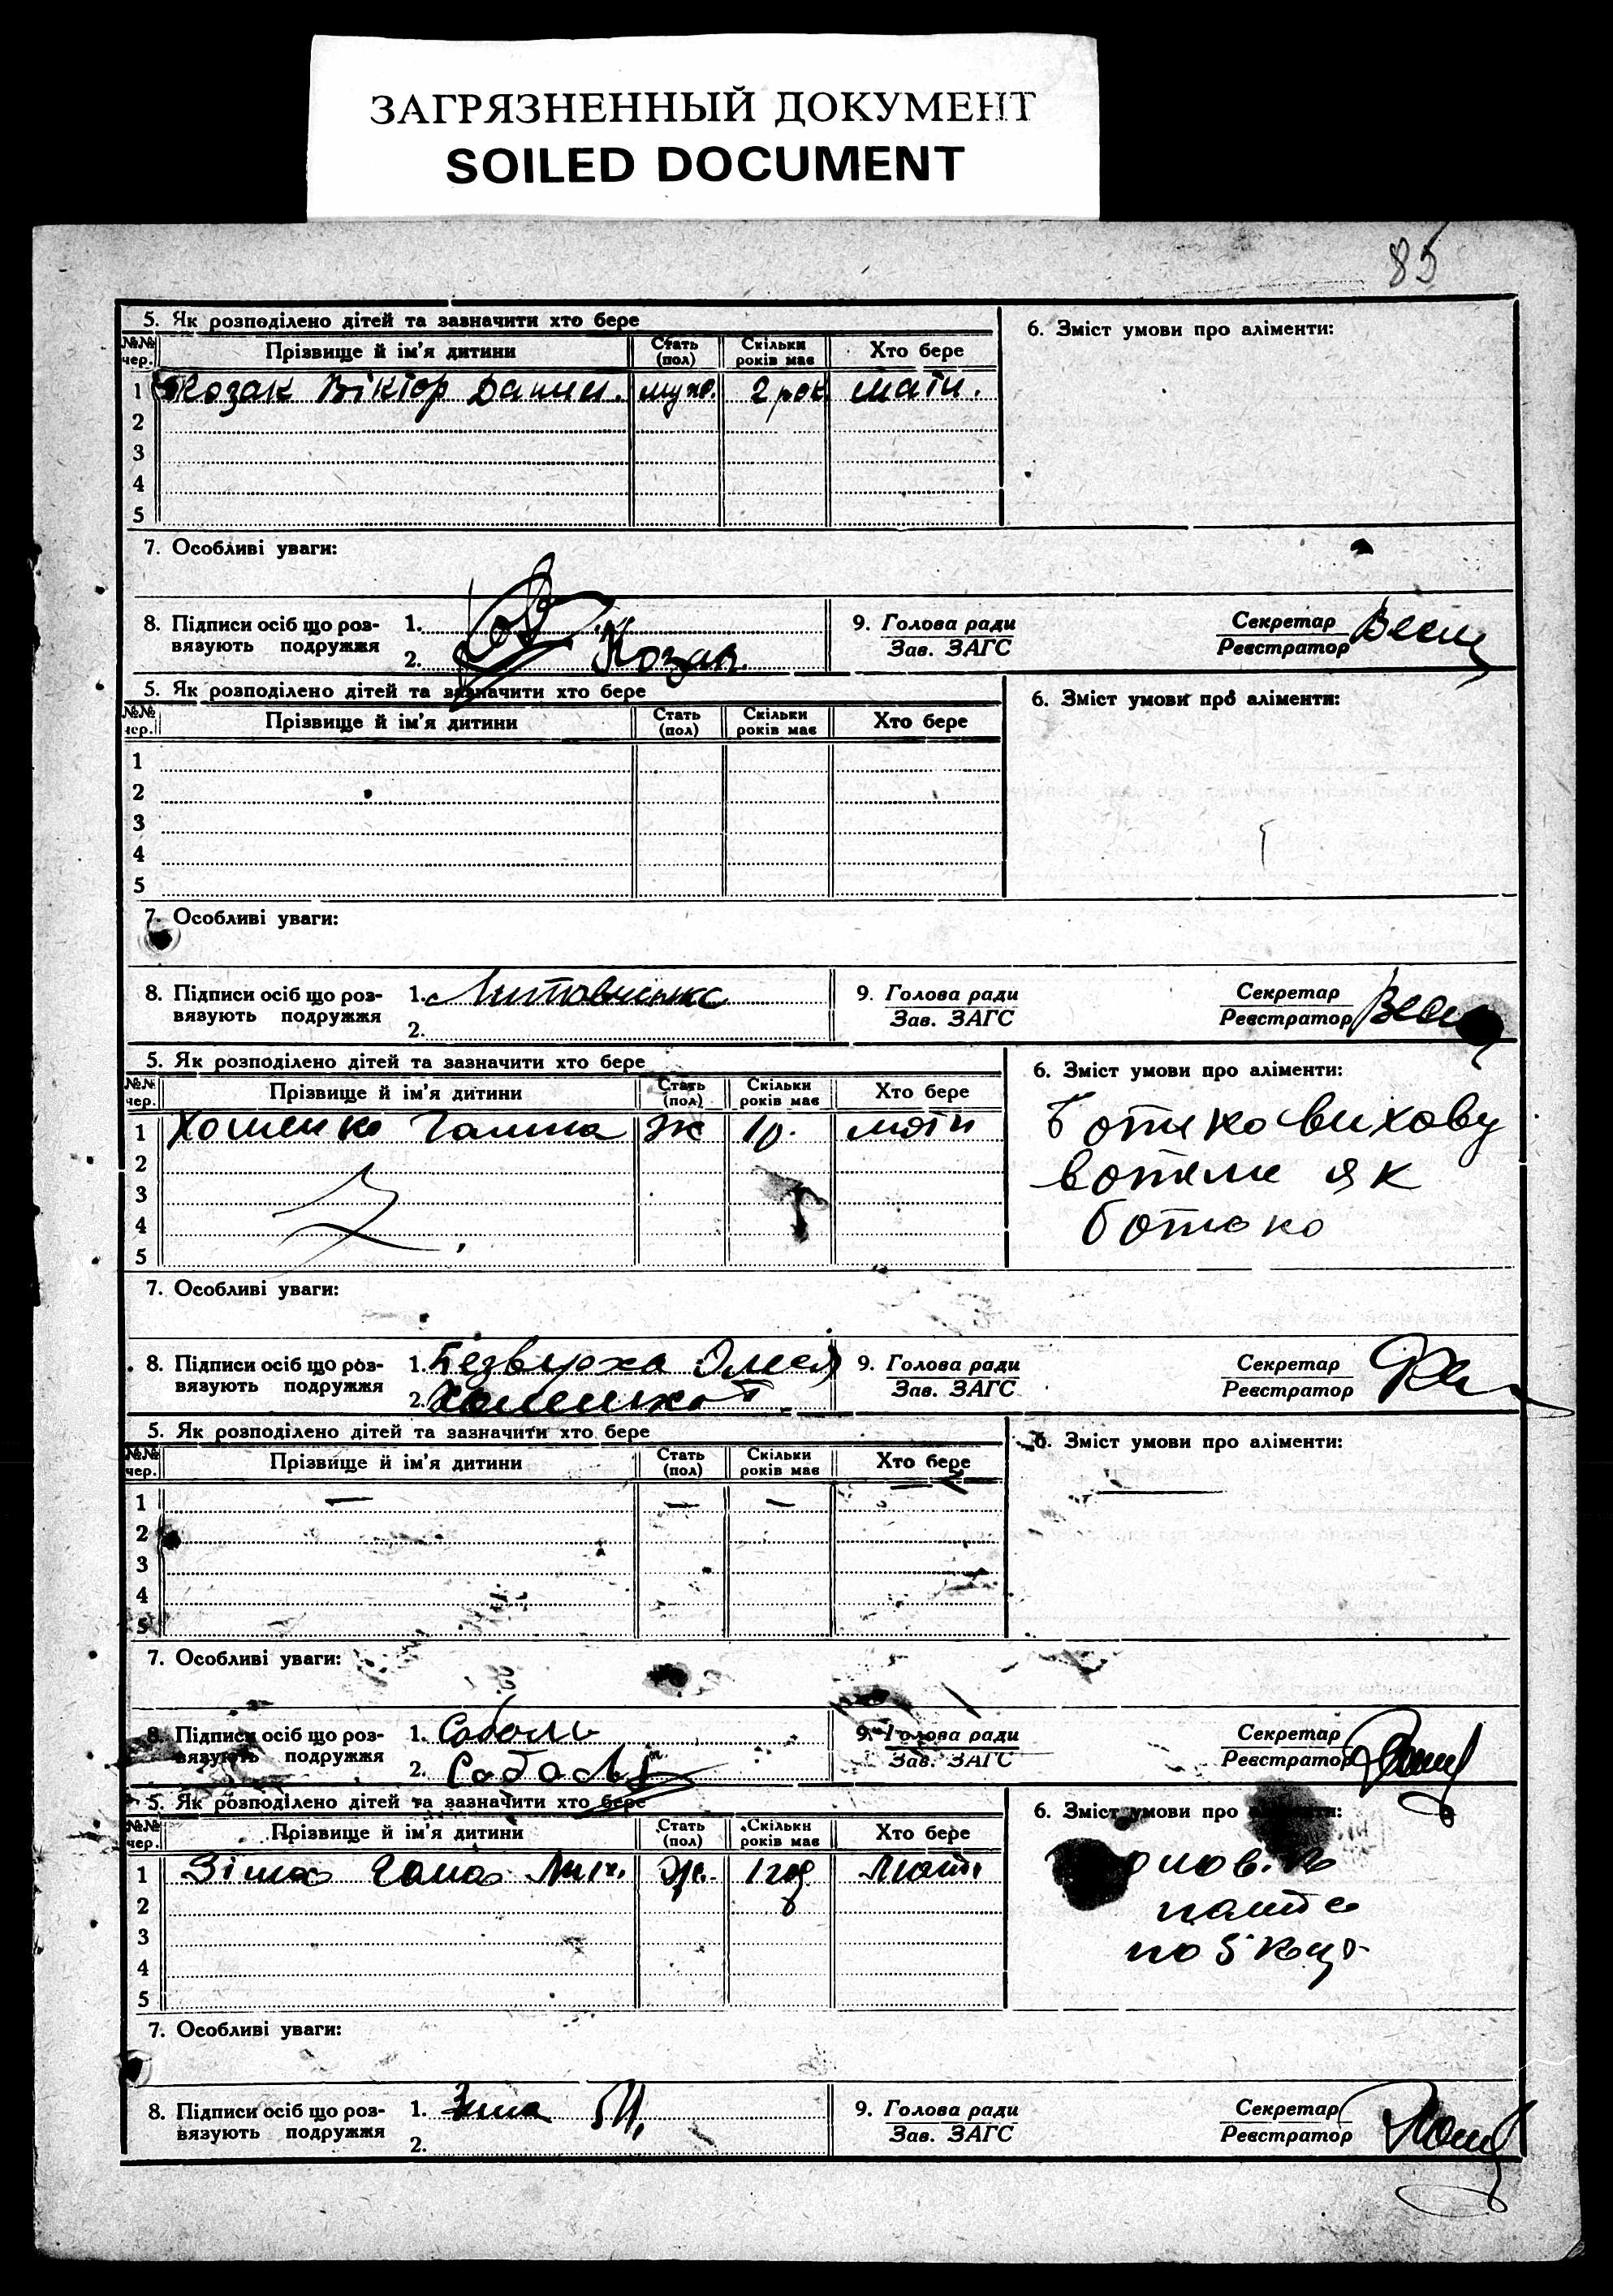 ЗАГРЯЗНЕННЫЙ ДОКУМЕНТ
SOILED DOCUMENT
85
5. Як розподілено дітей та зазначити хто бере
6. Зміст умови про аліменти:
№№ чер. Прізвище й ім'я дитини Стать (пол) Скільки років має Хто бере
1 Козак Віктор Данил. муж. 2 рок. мати.
2
3
4
5
7. Особливі уваги:
8. Підписи осіб що роз- 1. 9. Голова ради Секретар
вязують подружжя 2. Козак Зав. ЗАГС Реєстратор
5. Як розподілено дітей та зазначити хто бере
6. Зміст умови про аліменти:
№№ чер. Прізвище й ім'я дитини Стать (пол) Скільки років має Хто бере
1
2
3
4
5
7. Особливі уваги:
8. Підписи осіб що роз- 1. 9. Голова ради Секретар
вязують подружжя 2. Зав. ЗАГС Реєстратор
5. Як розподілено дітей та зазначити хто бере
6. Зміст умови про аліменти:
№№ чер. Прізвище й ім'я дитини Стать (пол) Скільки років має Хто бере
1 Хоменко Галина ж 1р. мати
2
як
3
4
5
7. Особливі уваги:
8. Підписи осіб що роз- 1. Безверха 9. Голова ради Секретар
вязують подружжя 2. Зав. ЗАГС Реєстратор
5. Як розподілено дітей та зазначити хто бере
6. Зміст умови про аліменти:
№№ чер. Прізвище й ім'я дитини Стать (пол) Скільки років має Хто бере
1 — — —
2
3
4
5
7. Особливі уваги:
8. Підписи осіб що роз- 1. Соболь 9. Голова ради Секретар
вязують подружжя 2. Соболь Зав. ЗАГС Реєстратор
5. Як розподілено дітей та зазначити хто бере
6. Зміст умови про аліменти:
№№ чер. Прізвище й ім'я дитини Стать (пол) Скільки років має Хто бере
1 Зіма Гана Ж. 1 год мати
2
3
по 5
4
5
7. Особливі уваги:
8. Підписи осіб що роз- 1. Зима 9. Голова ради Секретар
вязують подружжя 2. Зав. ЗАГС Реєстратор